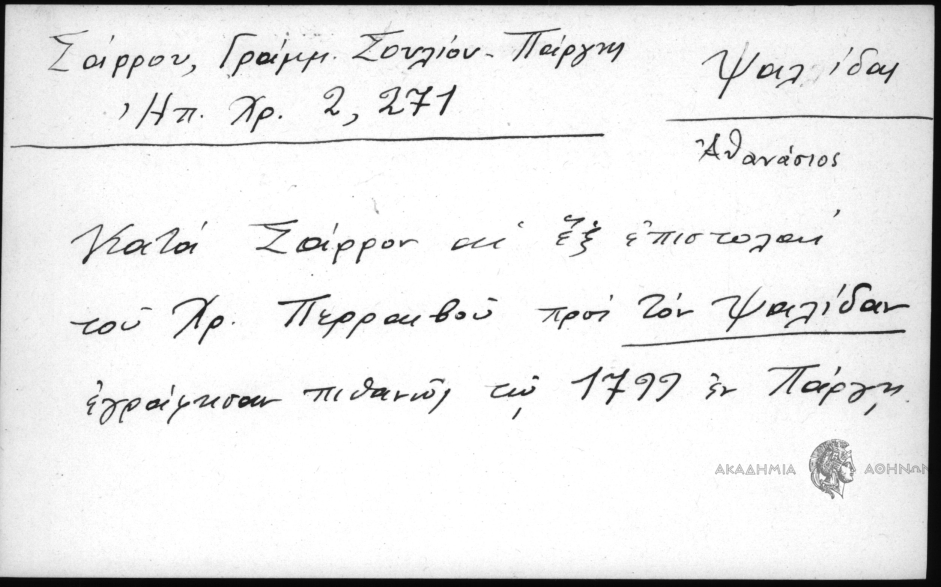 Σάρρου, Γράμμ. Σουλίου - Πάργης
Ἠπ. Χρ. 2, 271
Ψαλίδας
Ἀθανάσιος
Κατά Σάρρον αἱ ἕξ ἐπιστολαί
τοῦ Χρ. Περραιβοῦ πρός τόν Ψαλίδαν
ἐγράφησαν πιθανῶς τῷ 1799 ἐν Πάργῃ.
ΑΚΑΔΗΜΙΑ ΑΘΗΝΩΝ